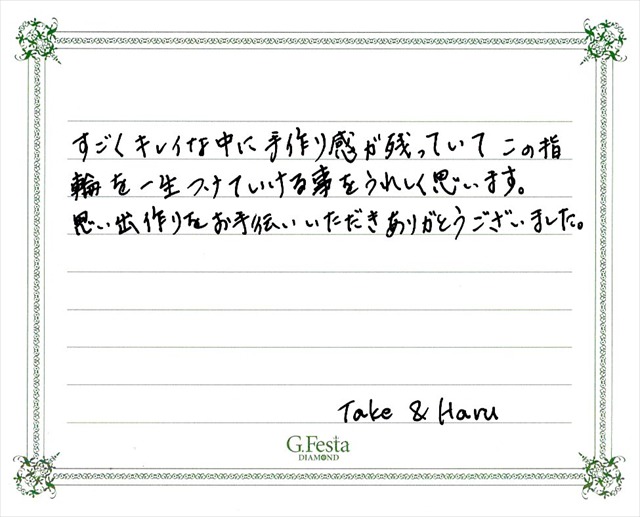 すごくキレイな中に手作り感が残っていてこの指
輪を一生つけていける事をうれしく思います。
思い出作りをお手伝いいただきありがとうございました。
Take & Haru
G.Festa
DIAMOND